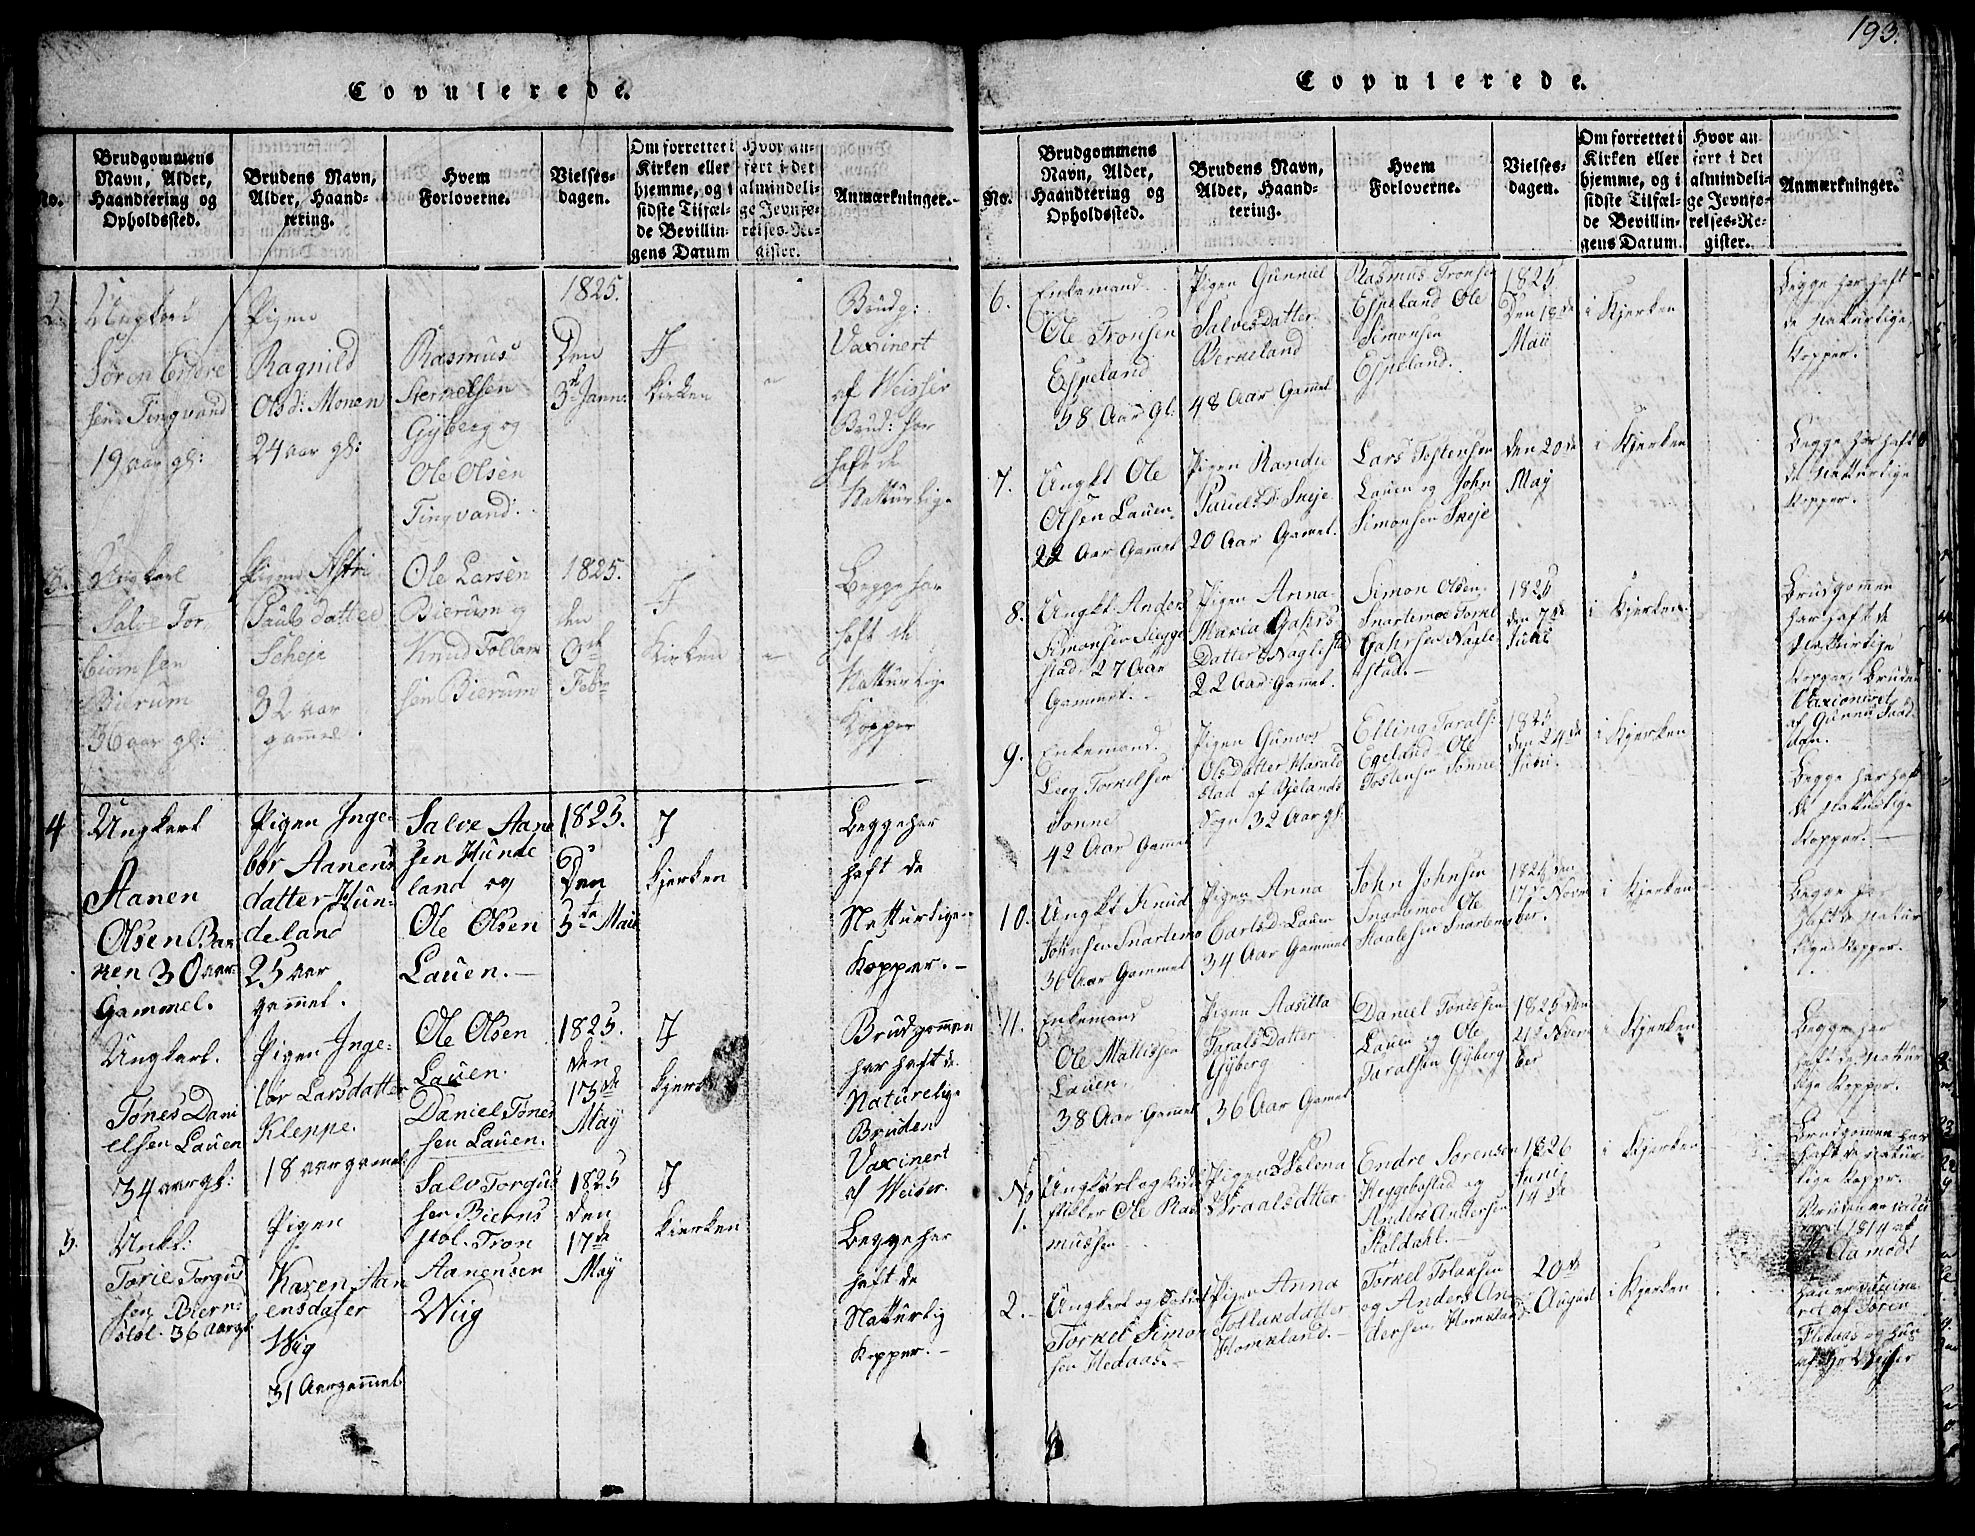 193.
Copulerede.
No.
Brudgommens
Navn, Alder,
Haandtering og
Opholdssted.
Brudens Navn,
Alder, Haand-
tering.
Hvem
Forloverne.
Vielses-
dagen.
Om forrettet i
Kirken eller
hjemme, og i
sidste Tilfæl-
de Bevillin-
gens Datum
Hvor an-
ført i det
almindeli-
ge Jevnfø-
relses-Re-
gister.
Anmærkninger.
2.
Ungkarl
Søren
sen Tingvand
19 aar gl:
Pigen
Ragnild
Olsd: Monen
24 aar gl:
Rasmus
Gyberg og
Ole Olsen
Tingvand.
1825.
Den
3de Janu:
I
Kirken
Brudg:
Vaxinert
af Weisser
Brud: har
haft de
Natturlige
3.
Ungkarl
Salve Tor
biomsen
Bierum
36 aar gl:
Pigen Astri
Pauls datter
Scheje
32 aar
gammel.
Ole Larsen
Bierum og
Knud Tollav
sen Bierum
1825.
den
9de
Febr
I
Kirken
Begge har
haft de
Natturlige
Kopper
4
Ungkarl
Aanen
Olsen Bar
ken 30 aar
Gammel.
Pigen Inge-
bør Aanens
datter Hun-
deland
25 aar
gammel.
Salve Aane
sen Hunde
land og
Ole Olsen
Lauen.-
1825.
Den
5te Maii
I
kjerken
Begge har
haft de
Natturlige
Kopper.-
Ungkarl.
Tønes Dani
elsen Lauen
34 aar gl:
Pigen Inge-
bør Larsdatter
Kleppe.
18 aar gamel
Ole Olsen
Lauen.
Daniel Tønes
sen Lauen.
1825.
den
13de
Maÿ
I
Brudgommen
har haft de
Naturelige
Bruden
Vaxinert
af Weiser.
5.
Unkl:
Torie Torgus
sen Biern-
støl. 36 Aar gl.
Pigen
Karen Aan
ensdater
Wiig
31 Aar gammel.
Salv Torgus
sen Bierns
støl. Tron
Aanensen
Wiig
1825
den
17de
Maÿ
I
kierken
Begge har
haft de
Natturlig
Kopper.-
Copulerede.
No.
Brudgommens
Navn, Alder,
Haandtering og
Opholdssted.
Brudens Navn,
Alder, Haand-
tering.
Hvem
Forloverne.
Vielses-
dagen.
Om forrettet i
Kirken eller
hjemme, og i
sidste Tilfæl-
de Bevillin-
gens Datum.
Hvor an-
ført i det
almindeli-
ge Jevnfø-
relses-Re-
gister.
Anmærkninger.
6.
Enkemand.
Ole Tronsen
Espeland
58 Aar gl:
Pigen Gunniel
Salvesdatter
Berneland
48 Aar Gammel
Rasmus Tronsen
Espeland Ole
Simonsen
Espeland.
1825
Den 18de
Maii
i Kjerken
Begge har haft
de Naturlige
Kopper.
7.
Ungkl Ole
Olsen Lauen.
22 Aar Gammel
Pigen Randi
Pauels D: Skeje
20 Aar Gamel.
Lars Tostensen
Lauen og John
Simonsen Skeje
den 20de
Maÿ
i Kjerken
Begge har haft
de Natturlige
Kopper.
8.
Ungkl: Anders
Simonsen Hegge
stad 27 Aar
Gammel.-
Pigen Anna
Maria Gahrs
Datter Naglestad
22 Aar Gammel.
Simon Olsen
Snartemoe Torkel
Gahrsen Nagle
stad.-
1825
den 7de
Juni
i Kjerken
Brudgommen
har haft de
Natturlige
Kopper, Bruden
Vaxioneret
af Gunnu
9.
Enkemand.
Leeg Torkelsen
Tonne
42 Aar Gamel
Pigen Gunvor
Olsdatter Harald
stad af Bjelands
Sogn 32 Aar gl.
Elling Taralds:
Egeland Ole
Tostensen Tonne
1825
den 24de
Juni.
i Kjerken
Begge har haft
de Naturlige
Kopper.-
10.
Ungkl Knud
Johnsen Snartemo
36 Aar Gammel
Pigen Anna
Carlsd. Lauen
34 Aar Gammel
John Johnsen
Snartemoe Ole
Staalesen Snartemo
1825 den
17de Novem
ber.
i Kjerken
Begge har
haft de Natur
lige Kopper.
11.
Enkemand
Ole Mattissen
Lauen.
38 Aar Gammel
Pigen Aasilta
Taralsdatter
Gyberg
36 Aar Gamel
Daniel Tønessen
Lauen og Ole
Taralsen Gyberg
1825 den
21de Novem
ber
i Kjerken
Begge har
haft de Natur
lige Kopper.
No
1.
Ungkarl og
Ole Ras
mussen
Pigen Helena
Braalsdatter
Endre Sørensen
Heggebostad og
Anders Andersen
Støldahl.-
1826
Junii
14de
i Kjerken
Brudgommen har
haft de Natur-
lige Kopper.
Bruden er
1814 af
Aamodt
2.
Ungkarl og
Torkel Simon
sen Hedaas.-
Pigen Anna
Tollaxdatter
Homeland.-
Torkel Tolaxsen
og Anders An
dersen Homeland
20de
August
i Kjerken
han er vaccine
ret af Søren
Hedaas og hun
af Hr Weiser